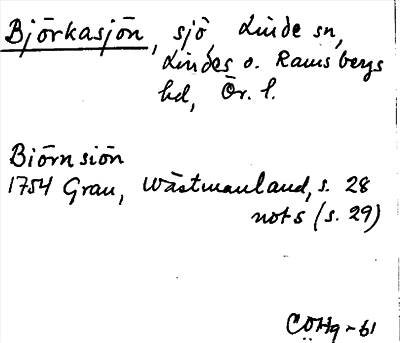 Björkasjön, sjö, Linde sn,
Lindes o. Ramsbergs
hd, Ör. l.
Biörnsiön
1754 Grau, Wästmanland, s. 28
not s (s. 29)